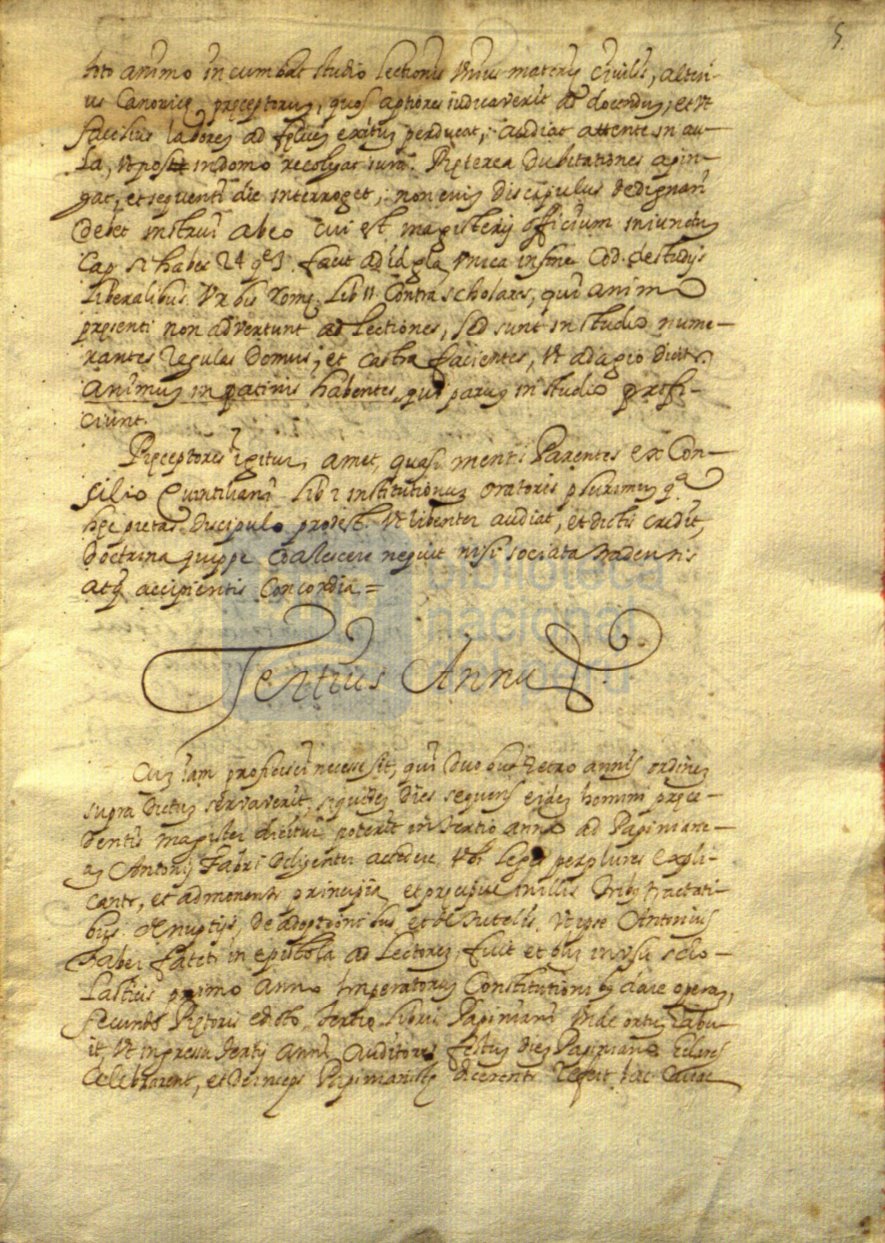 5.
toto animo incumbat studio lectionis unius materię civilis, alteri-
us Canonicę pręceptorum, quos aptiores iudicaverit ad docendum, et ut
facilius laborem ad felicem exitum perducat, audiat attente in au-
la, ut post in domo recolligat. Pręterea dubitationes apin-
gat, et sequenti die interroget, non enim discipulus dedignari
debet instrui ab eo cui est magisterij officium iniunctum
Cap. si habes 24 q. 3. facit ad id unica in fine Cod. de studijs
liberalibus Urbis Romę lib. 11. Contra scholares, qui animo
pręsenti non advertunt ad lectiones, sed sunt in studio nume-
rantes tegulas domus, et castra facientes, ut adagio dicit.
Animum in patinis habentes, qui parum in studio profi-
ciunt.
Pręceptores igitur amet, quasi mentis Parentes ex Con-
silio Quintiliani lib. 2 institutionum oratoris plurimum q.
hęc pietas discipulo prodest. Ut libenter audiat, et dictis credit,
Doctrina quippe coalescere nequit nisi sociata tradentis
atq accipientis Concordia =
Tertius Annus
Cum iam proficisci necesse sit, qui duobus retro annis ordinem
supra dictum servaverit, siquidem dies sequens eiusdem homini pręce-
dentis magister dicitur poterit in tertio anno ad Papiniane-
um Antonij Fabri diligenter accedere, ubi leges perplures expli-
cantr, et admonentr principia et pręcipue in illis tribus tractati-
bus de nuptijs, de adoptionibus, et de tutelis. Ut ipse Antonius
Faber fatetr in epistola ad Lectorem, fuit et olim in usu scho-
lasticis primo anno Imperatorum Constitutionibus dare operam,
secundo Pretoris edicto, tertio libris Papiniani inde ortum habu-
it, ut ingressu tertij anni Auditores festum diem Papiniano
celebrarent, et deinceps Papinianistę dicerentr